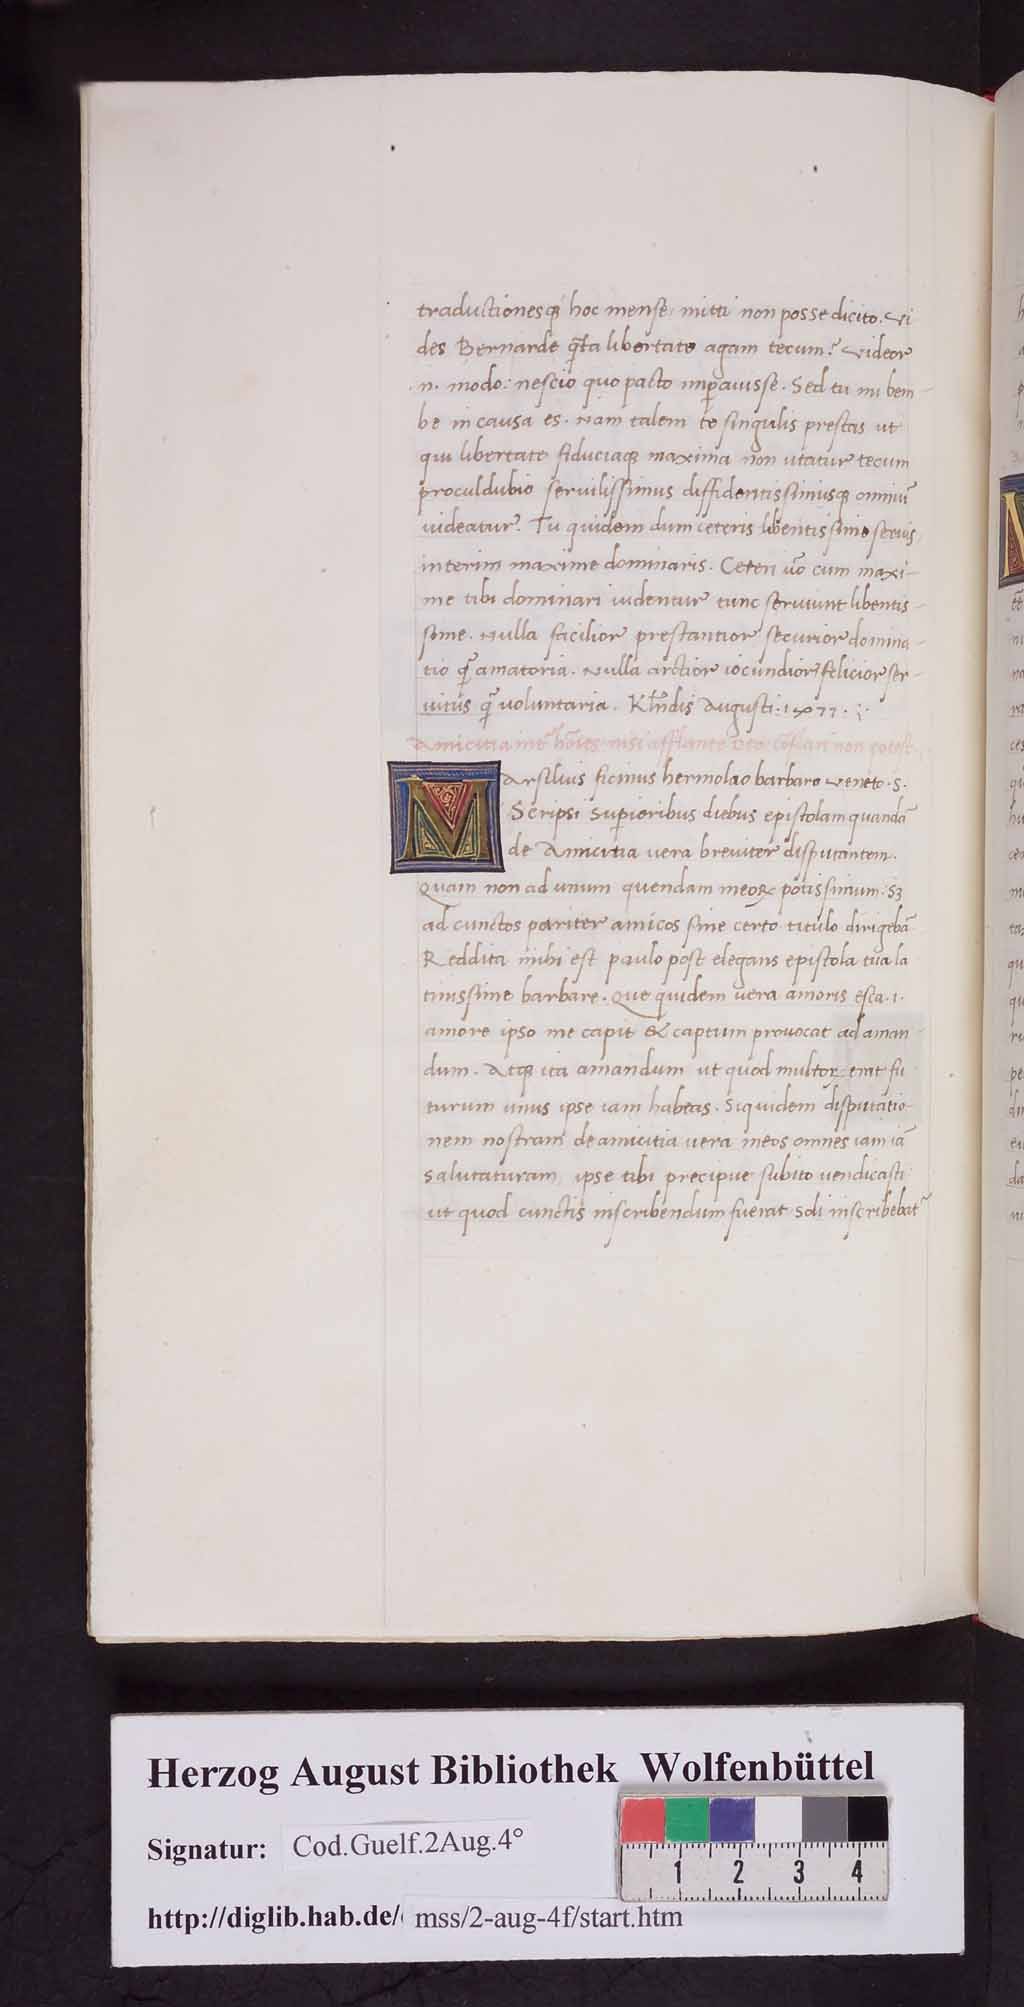 traductionesq̃ hoc mense mitti non posse dicito. Vi
des Bernarde q̃ta libertate agam tecum? Videor
.n. modo: nescio quo pacto imp̱auisse. Sed tu mi bem-
be in causa es. Nam talem te singulis prestas ut
qui libertate fiduciaq̃ maxima non utatur tecum
proculdubio seruilissimus diffidentissimusq̃ omniũ
uideatur. Tu quidem dum ceteris libentissime seruis
interim maxime dominaris. Ceteri uõ cum maxi-
me tibi dominari uidentur tunc seruiunt libentis-
sime. Nulla facilior prestantior securior domina-
tio q̃ amatoria. Nulla arctior iocundior felicior ser-
uitus q̃ uoluntaria. Kl̃ndis Augusti: 1477.
Amicitia int̃ hoĩes nisi afflante deo cõflari non potest.
Marsilius ficinus hermolao barbaro Veneto. S.
Scripsi sup̱ioribus diebus epistolam quandã
de Amicitia uera breuiter disputantem.
Quam non ad unum quendam meoꝝ potissimum: sꝫ
ad cunctos pariter amicos sine certo titulo dirigebã
Reddita mihi est paulo post elegans epistola tua la
tinissime barbare. Que quidem uera amoris esca .i.
amore ipso me capit & captum prouocat ad aman-
dum. Atq̃ ita amandum ut quod multoꝝ erat fu
turum unus ipse iam habeas. Siquidem disputatio-
nem nostram de amicitia uera meos omnes iam iã
salutaturam, ipse tibi precipue subito uendicasti
ut quod cunctis inscribendum fuerat soli inscribebat̃
Herzog August Bibliothek Wolfenbüttel
Signatur: Cod.Guelf.2Aug.4°
1 2 3 4
http://diglib.hab.de/ mss/2-aug-4f/start.htm